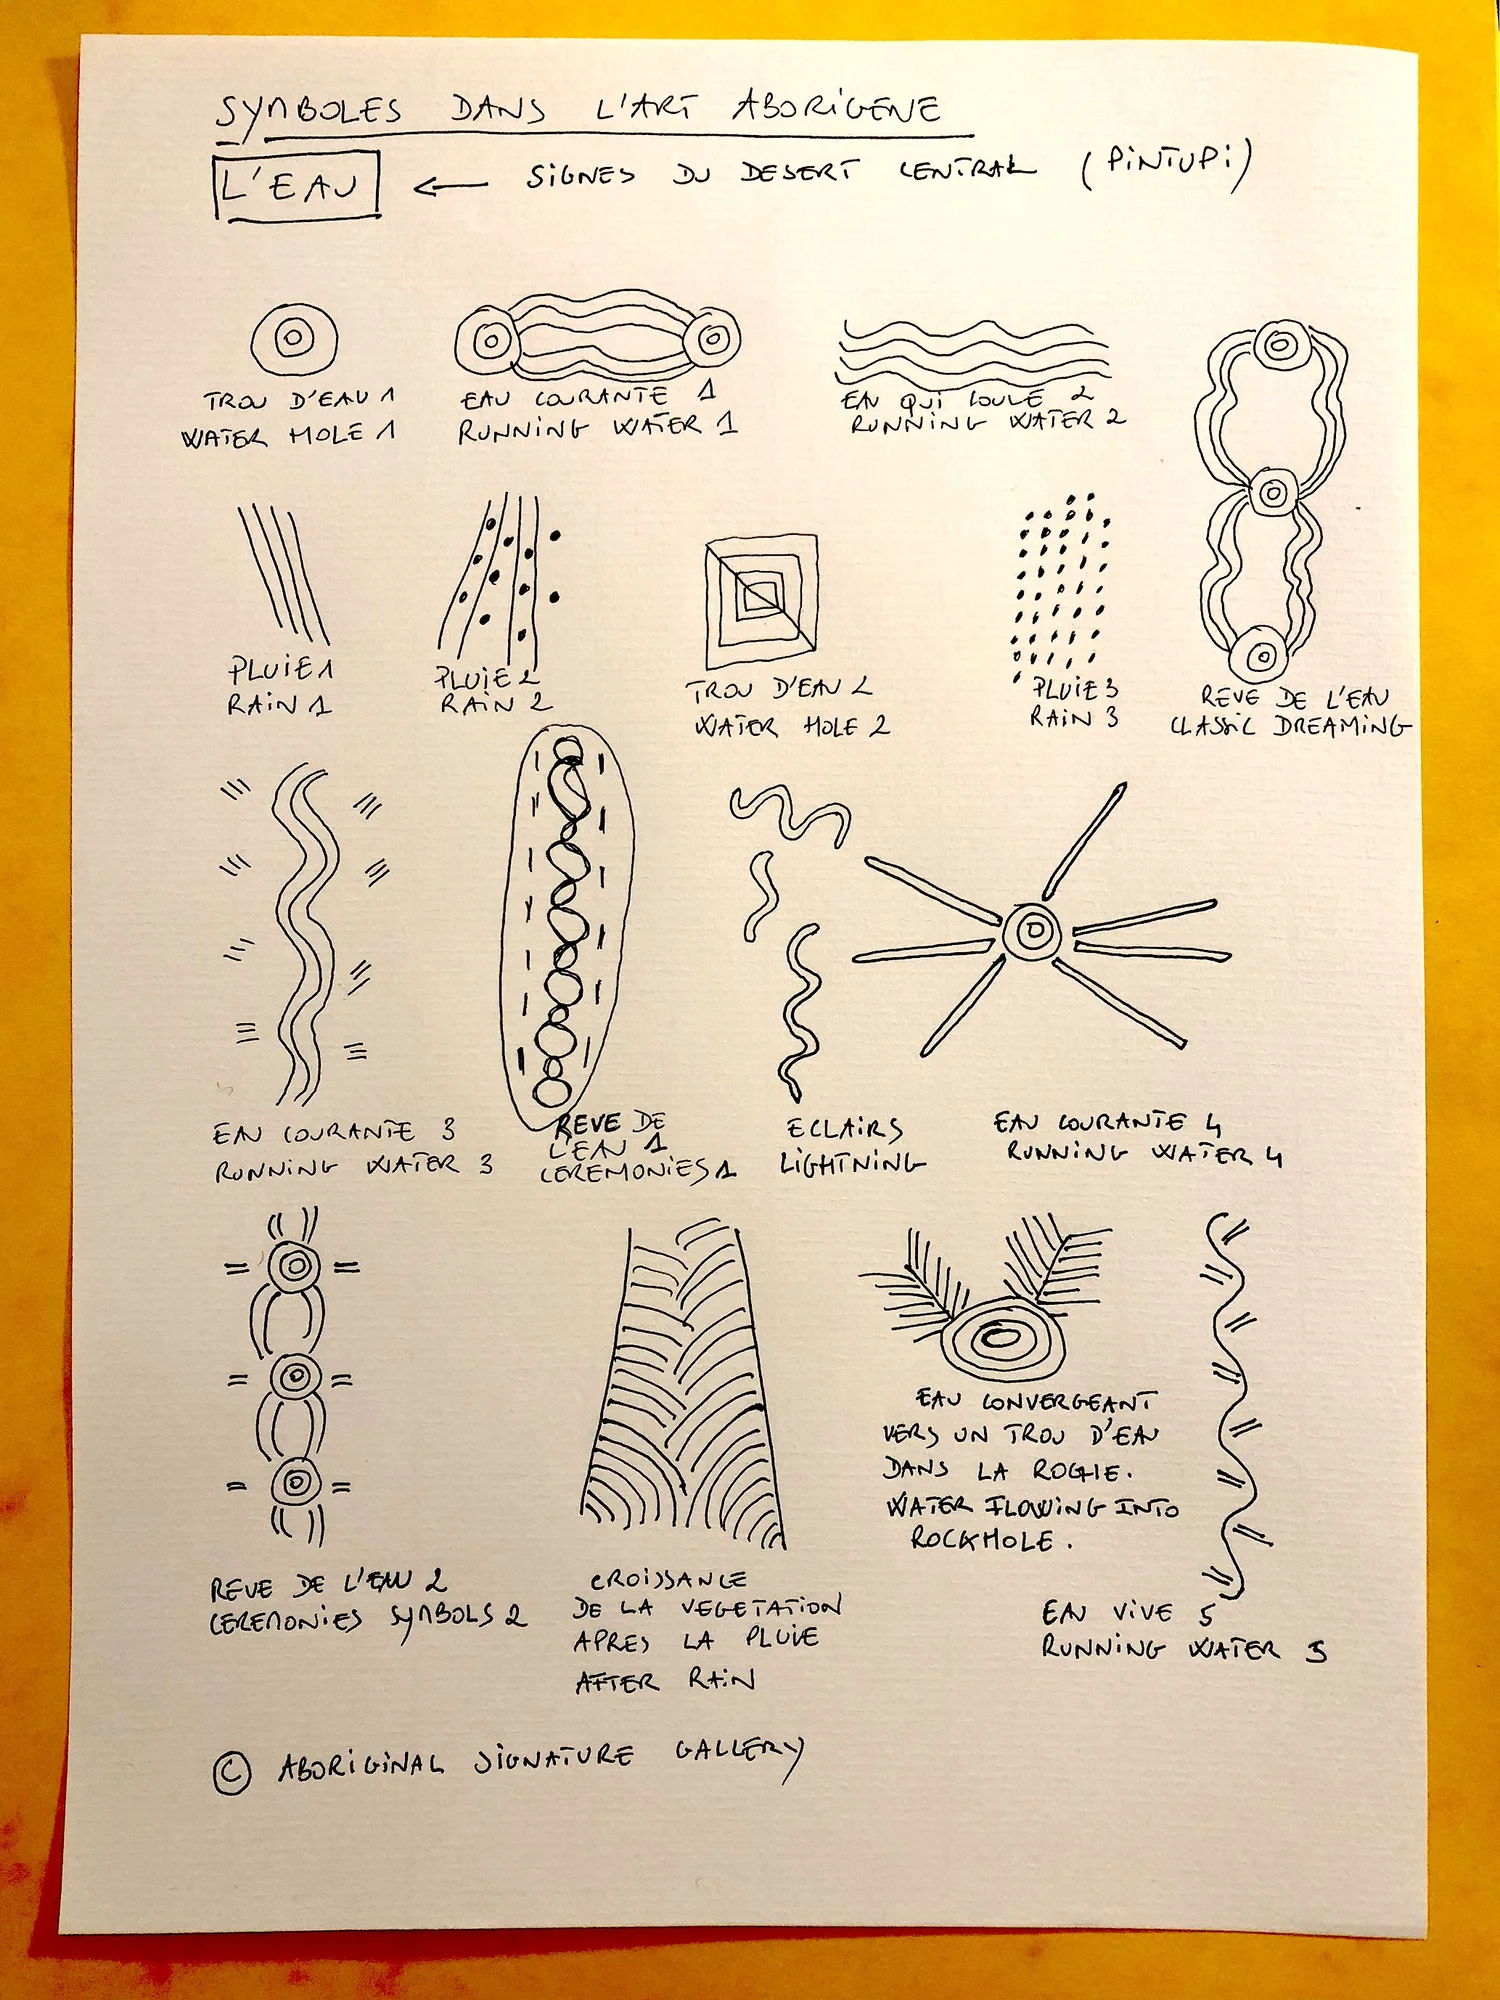 SYMBOLES DANS L'ART ABORIGENE
L'EAU ← SIGNES DU DESERT CENTRAL (PINTUPI)
TROU D'EAU 1
WATER HOLE 1
EAU COURANTE 1
RUNNING WATER 1
EAU QUI COULE 2
RUNNING WATER 2
PLUIE 1
RAIN 1
PLUIE 2
RAIN 2
TROU D'EAU 2
WATER HOLE 2
PLUIE 3
RAIN 3
REVE DE L'EAU
CLASSIC DREAMING
EAU COURANTE 3
RUNNING WATER 3
REVE DE
L'EAU 1
CEREMONIES 1
ECLAIRS
LIGHTNING
EAU COURANTE 4
RUNNING WATER 4
REVE DE L'EAU 2
CEREMONIES SYMBOLS 2
CROISSANCE
DE LA VEGETATION
APRES LA PLUIE
AFTER RAIN
EAU CONVERGEANT
VERS UN TROU D'EAU
DANS LA ROCHE.
WATER FLOWING INTO
ROCKHOLE.
EAU VIVE 5
RUNNING WATER 5
© ABORIGINAL SIGNATURE GALLERY